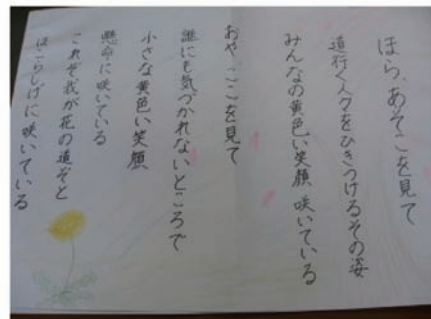 ほら、あそこを見て
道行く人々をひきつけるその姿
みんなの黄色い笑顔 咲いている
おや、ここを見て
誰にも気づかれないところで
小さな黄色い笑顔
懸命に咲いている
これぞ我が花の道ぞと
ほこらしげに咲いている